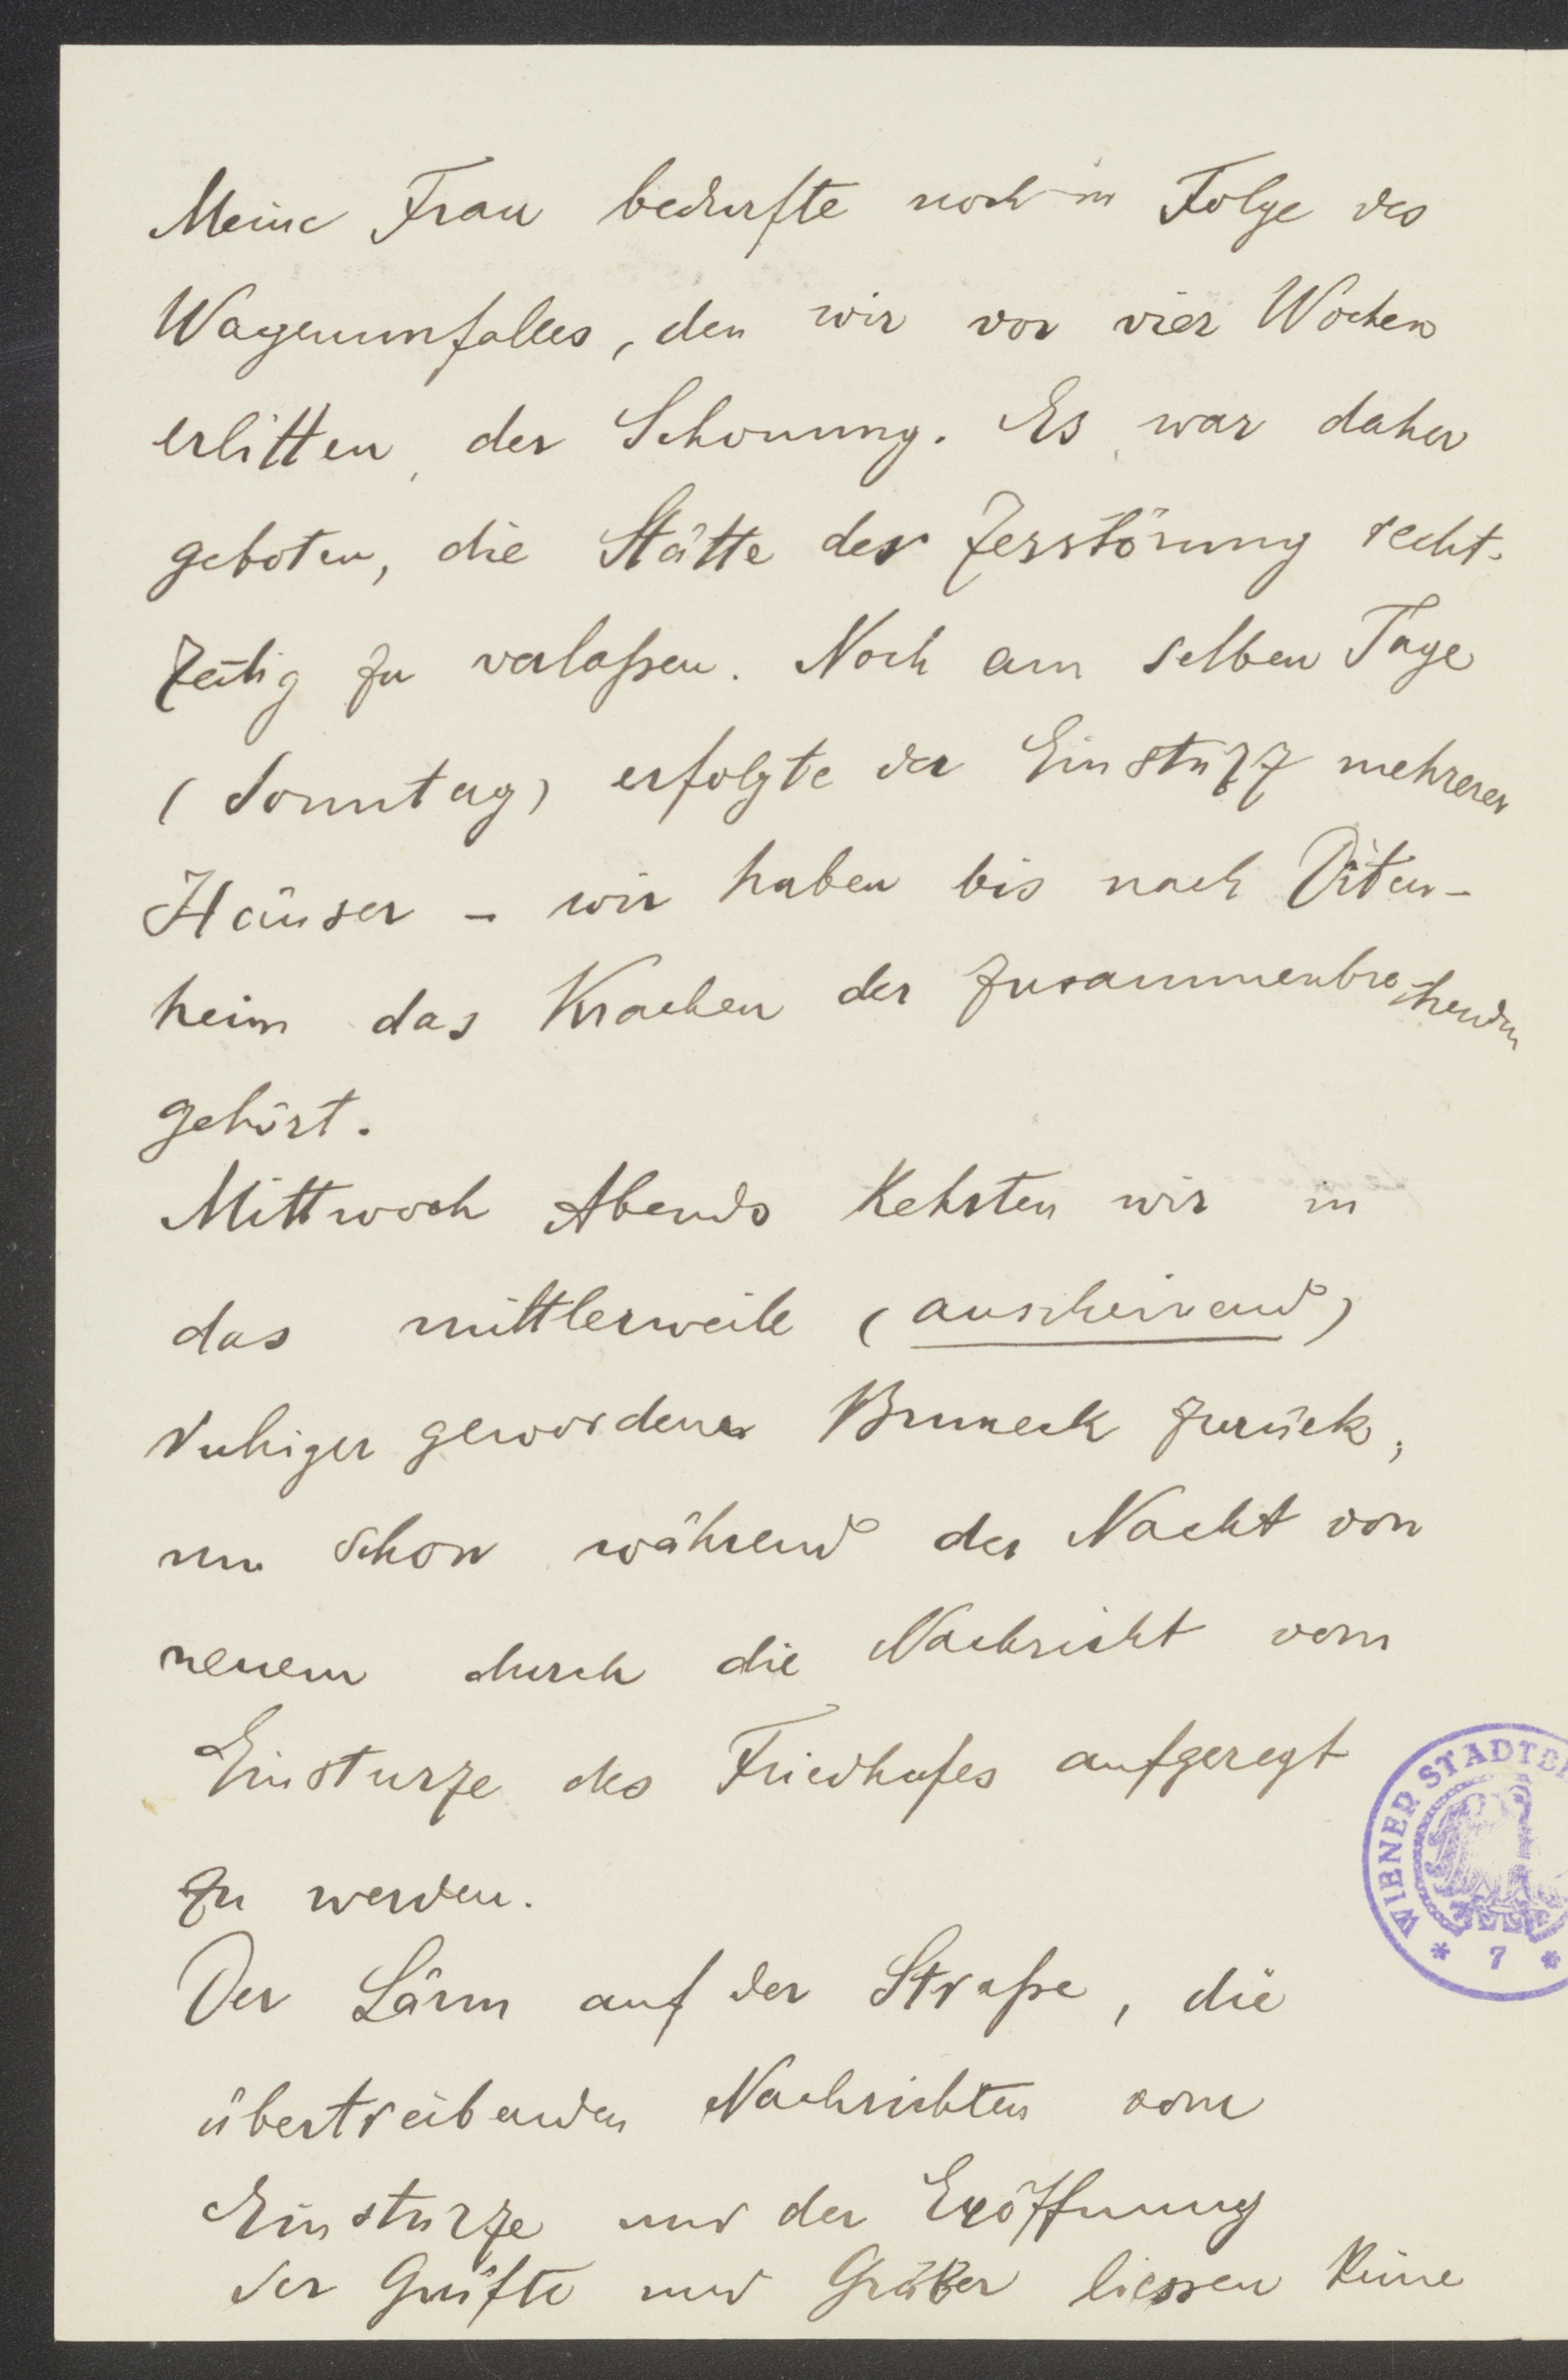 Meine Frau bedurfte noch in Folge des
Wagenunfalles, den wir vor vier Wochen
erlitten, der Schonung. Es war daher
geboten, die Stätte der Zerstörung recht-
zeitig zu verlaßen. Noch am selben Tage
(Sonntag) erfolgte der Einsturz mehrerer
Häuser – wir haben bis nach Diten-
heim das Krachen der zusammenbrechenden
gehört.
Mittwoch Abends kehrten wir in
das mittlerweile (anscheinend)
ruhiger gewordene Bruneck zurück,
um schon während der Nacht von
neuem durch die Nachricht vom
Einsturze des Friedhofes aufgeregt
zu werden.
Der Lärm auf der Straße, die
übertreibenden Nachrichten vom
Einsturze und der Eröffnung
der Grüfte und Gräber liessen keine
WIENER STADTBI
* 7 *